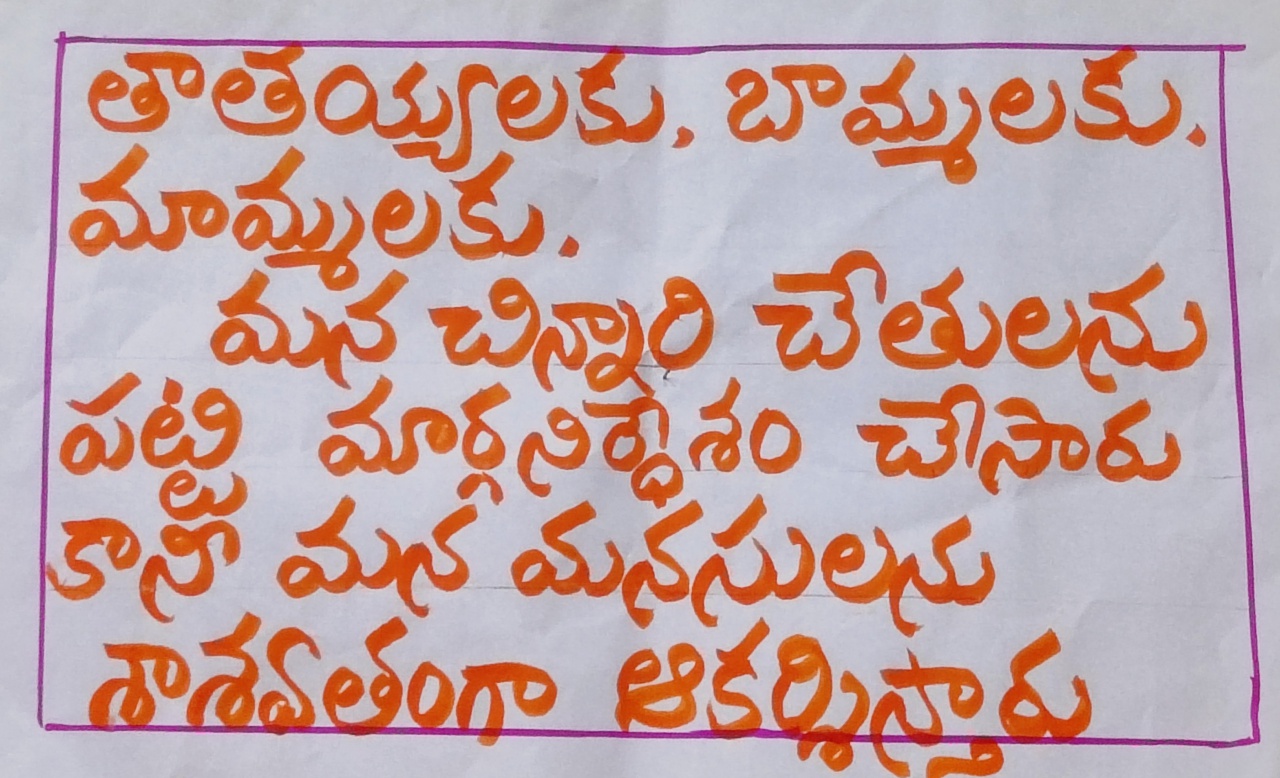 తాతయ్యలకు. బామ్మలకు.
మామ్మలకు.
మన చిన్నారి చేతులను
పట్టి మార్గనిర్దేశం చేసారు
కాని మన మనసులను
శాశ్వతంగా ఆకర్శిస్తారు